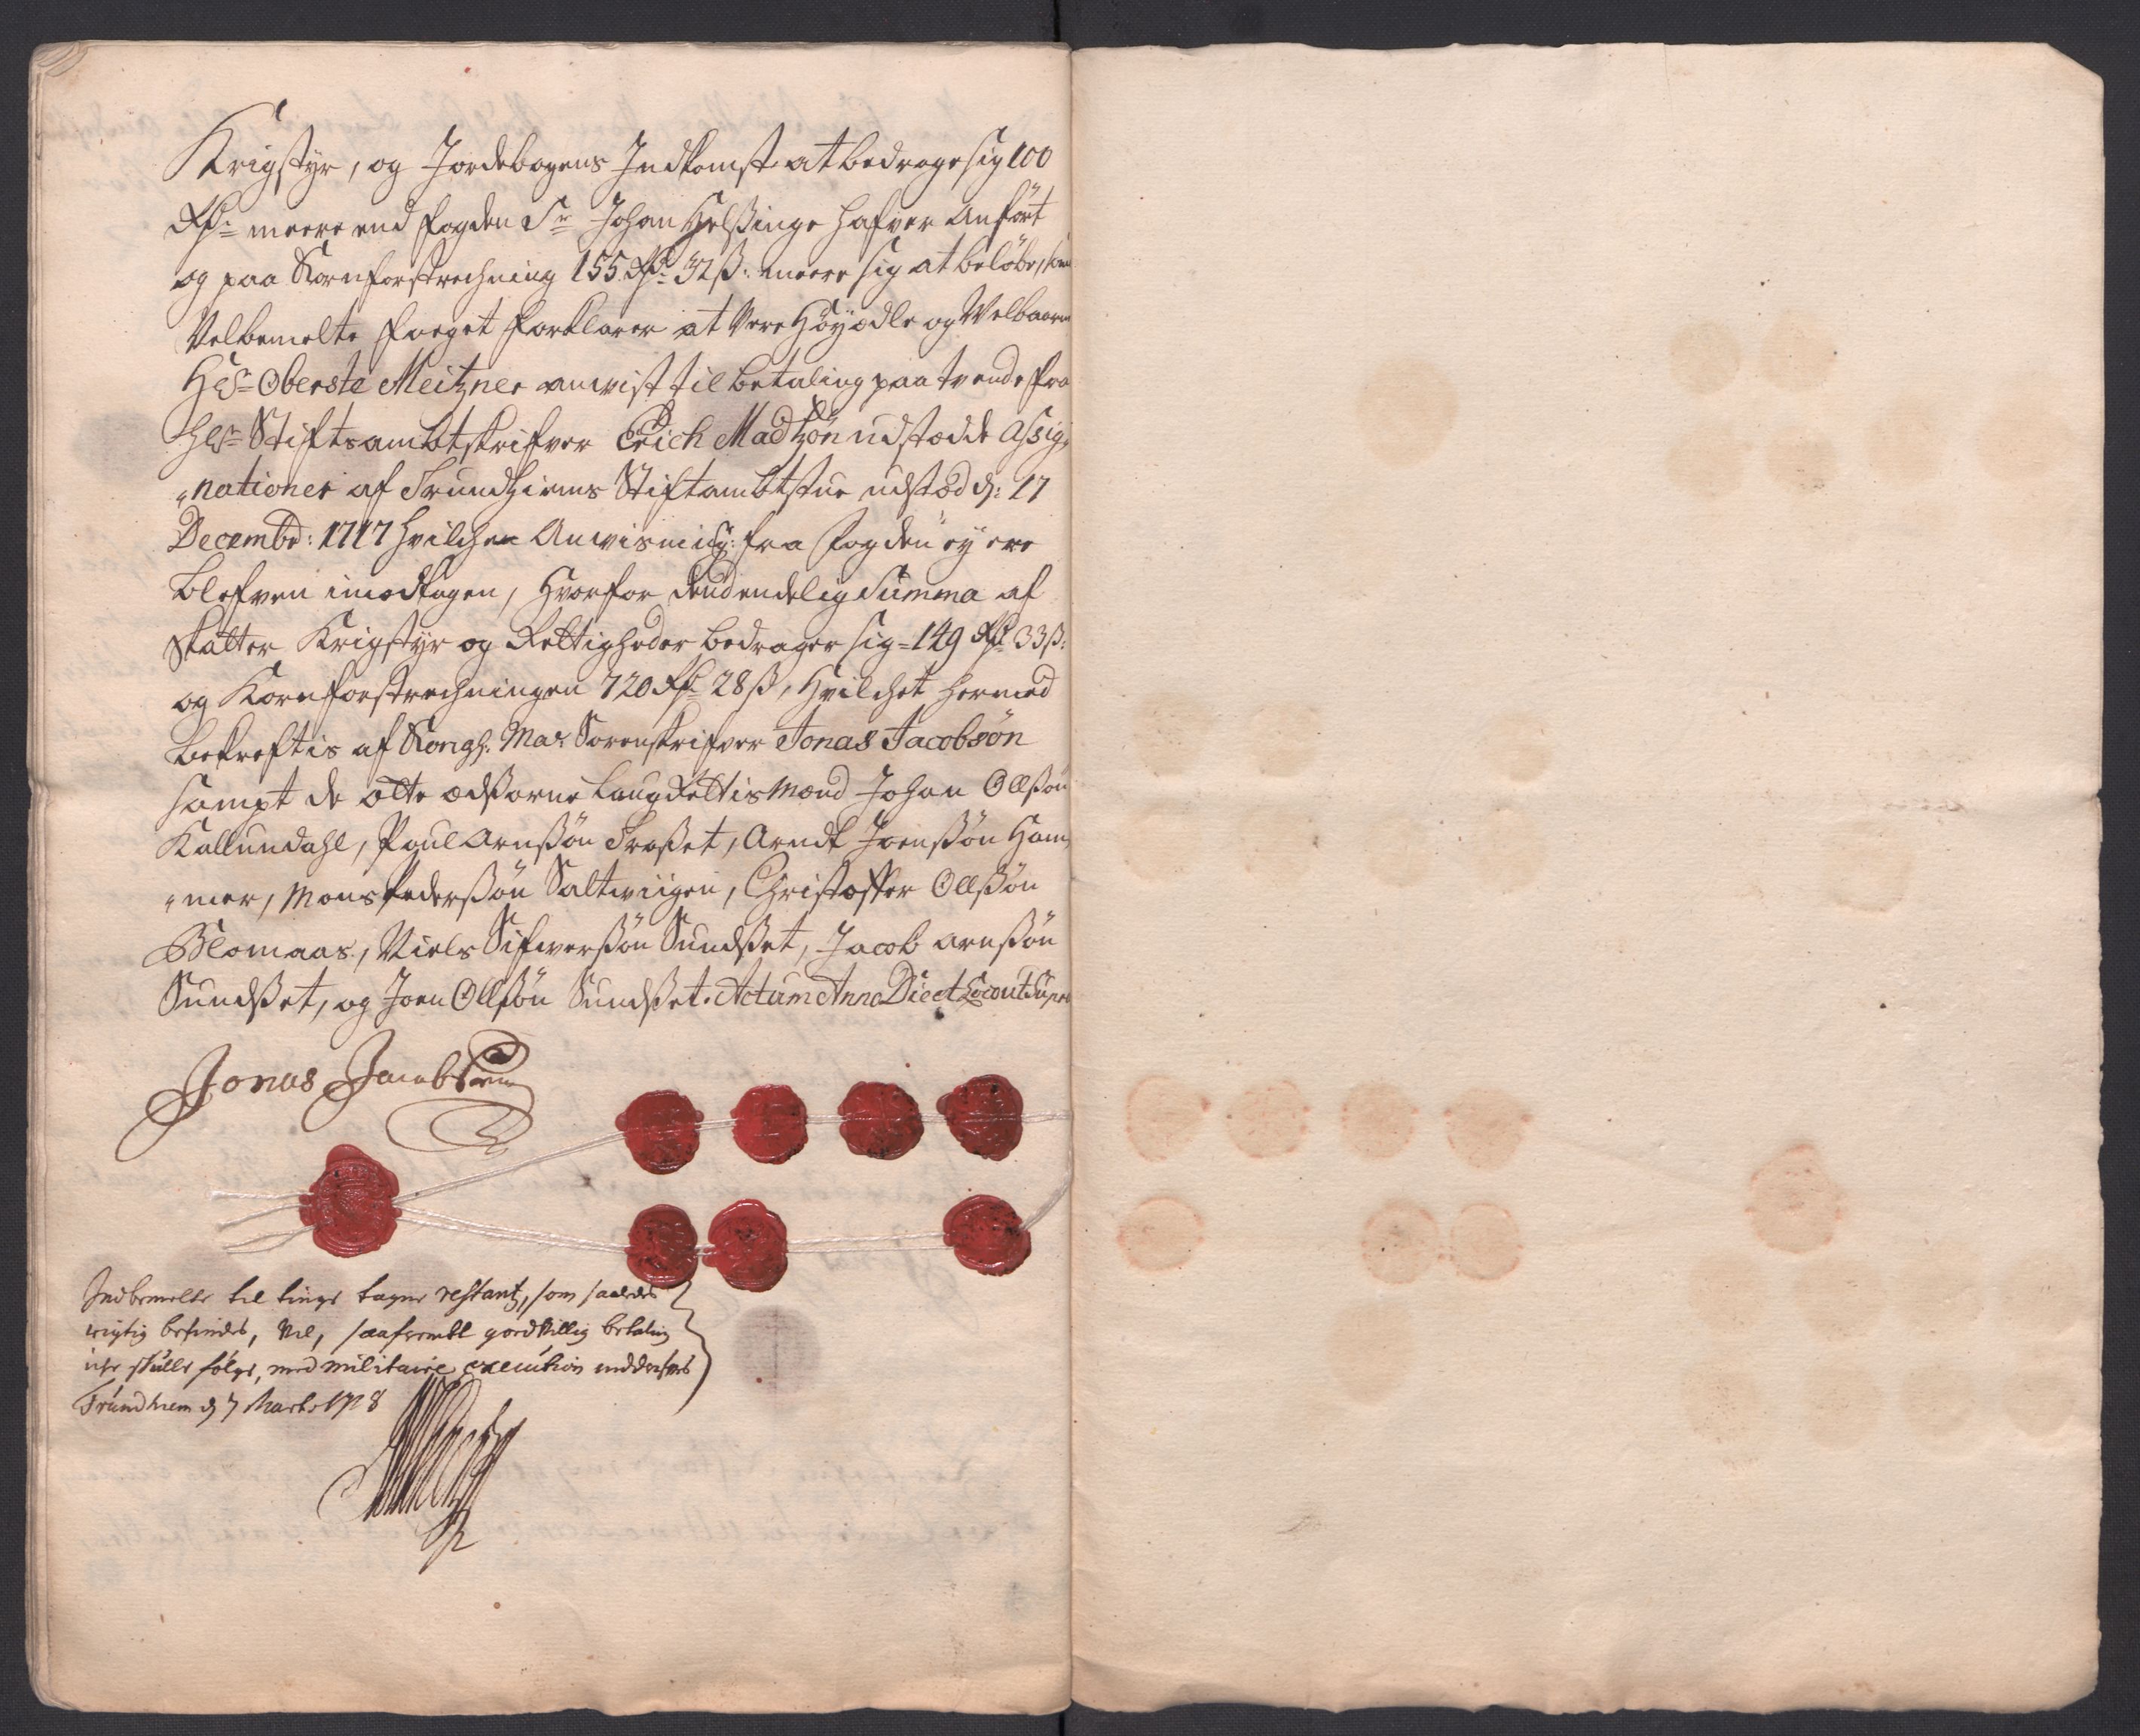 Krigstyr, og Jordebogens Indkomst at bedrage sig 100
Rd:= meere end fogden Sr Johan Helssinge hafver Anført
og paa Kornforstrechning 155 Rd= 32 ß: meere sig at beløbe, som
Velbemelte foeget forklarer at Vere Høyædle og Welbaarne
Hr= Oberste Meitzner anvist til betaling paa tvende fra
Hr= Stiftsambtskrifver Erich Madtzøn udstædde Assig,
„nationer af Trundhiems Stiftambtstue udstæd d: 17
Decembr: 1717 hvilche Anvisning: fra fogden ey ere
blefven imodtagen, Hvorfor dend endelig Summa af
Skatter Krigstyr og Rettigheder bedrager sig = 149 Rd 33 ß:
og Kornforstrechningen 720 Rd= 28 ß, Hvilchet hermed
bekreftis af Kongl: May Sorenskrifver Jonas Jacobsøn
sampt de otte ædsorne LaugRettis Mænd Johan Ollssøn
Kallundahl, Poul Arnssøn Trøset, Arndt Joenssøn Ham,
„mer, Mons Pederssøn Saltwiigen, Christoffer Ollssøn
Blomaas, Niels Sifwerssøn Sundsset, Jacob Arnssøn
Sundsset, og Joen Ollssøn Sundsset. Actum Anno Die et Loco ut Supra
Jonas Jacobsøn
Indbemelte til tinge tagne restantz, som saaledes
rigtig befindes, vil, saafremt goedvillig betaling
iche skulle følge, med militaire execution inddrifves
Trundhiem d 7 Marti 1718